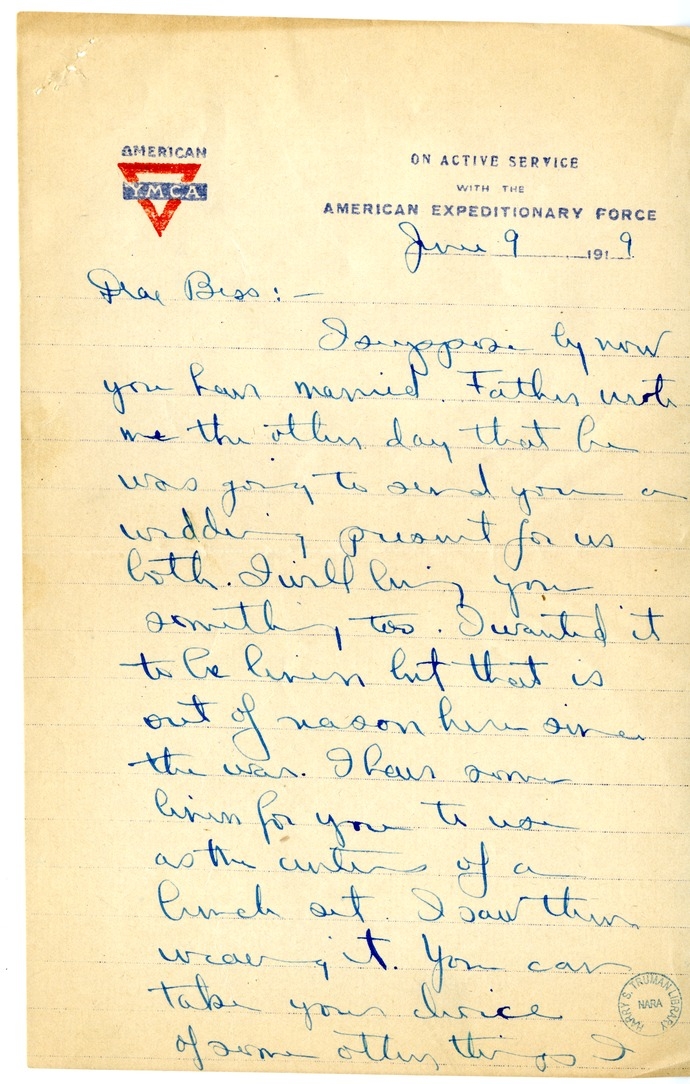 AMERICAN
YMCA
ON ACTIVE SERVICE
WITH THE
AMERICAN EXPEDITIONARY FORCE
June 9 1919
Dear Bess:—
I suppose by now
you have married. Father wrote
me the other day that he
was going to send you a
wedding present for us
both. I will bring you
something too. I wanted it
to be linen but that is
out of reason here since
the war. I have some
linen for you to use
as the centers of a
lunch set. I saw them
weaving it. You can
take your choice
of some other things I
HARRY S. TRUMAN LIBRARY
NARA